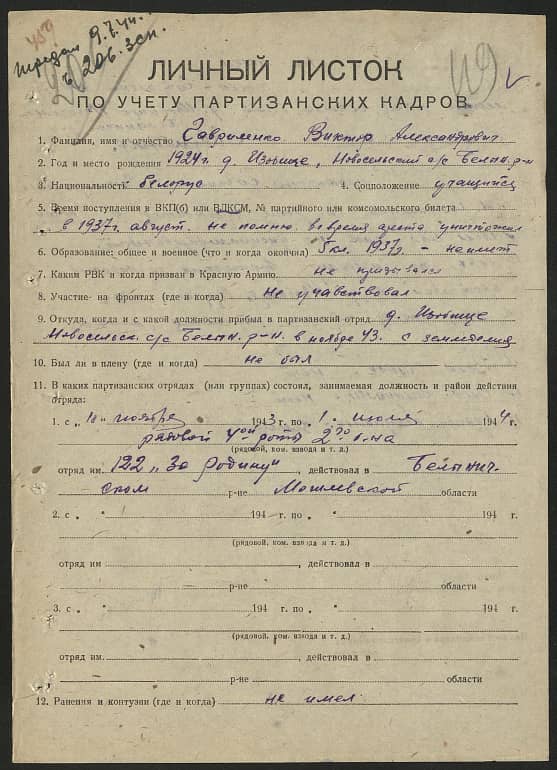 459
передан 9.7.44г.
в 206. зсп.
119
ЛИЧНЫЙ ЛИСТОК
ПО УЧЕТУ ПАРТИЗАНСКИХ КАДРОВ
1. Фамилия, имя и отчество Гавриленко Виктор Александрович
2. Год и место рождения 1924г. д. Изобище, Новосельский с/с Белын. р-н
3. Национальность белорус 4. Соцположение учащийся
5. Время поступления в ВКП(б) или ВЛКСМ, № партийного или комсомольского билета
в 1937г. август. не помню. во время ареста уничтожил
6. Образование: общее и военное (что и когда окончил) 5 кл. 1937г. - не имеет
7. Каким РВК и когда призван в Красную Армию не призывался
8. Участие на фронтах (где и когда) не учавствовал
9. Откуда, когда и с какой должности прибыл в партизанский отряд д. Изобище
Новосельск. с/с Белын. р-н. в ноябре 43. с земледелия
10. Был ли в плену (где и когда) не был
11. В каких партизанских отрядах (или группах) состоял, занимаемая должность и район действия
отряда:
1. с „10" ноября 1943 г. по „1" июля 1944 г.
рядовой 4ой роты 2го б-на
(рядовой, ком. взвода и т. д.)
отряд им. 122 „За Родину", действовал в Белынич-
ском р-не Могилевской области
2. с „ " 194 г. по „ " 194 г.
(рядовой, ком. взвода и т. д.)
отряд им. , действовал в
р-не области
3. с „ " 194 г. по „ " 194 г.
(рядовой, ком. взвода и т. д.)
отряд им. , действовал в
р-не области
12. Ранения и контузии (где и когда) не имел